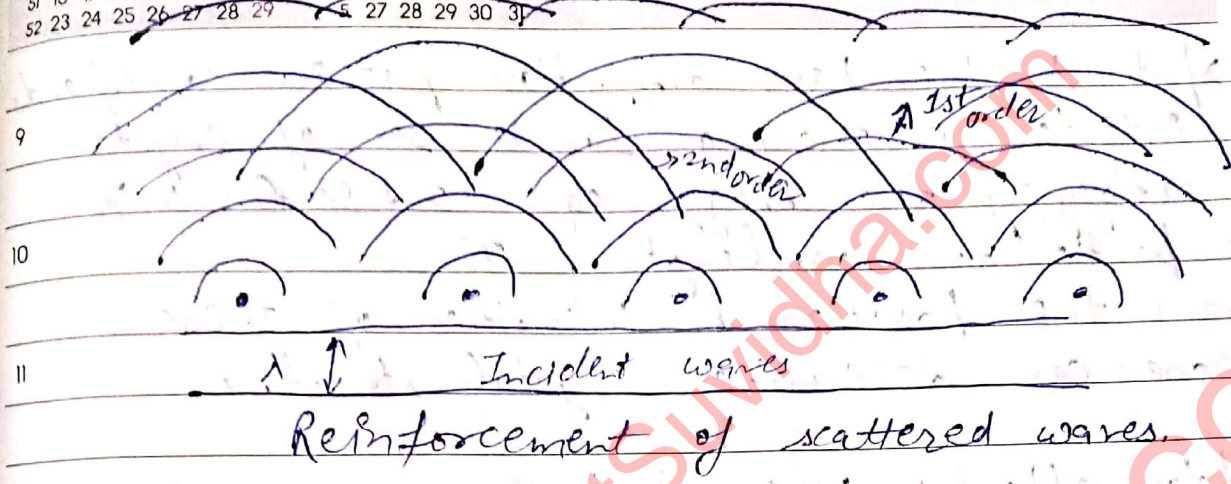 52 23 24 25 26 27 28 29
5 27 28 29 30 31
9
1st order
2nd order
10
11
λ Incident waves
Reinforcement of scattered waves.
Suvidha.com